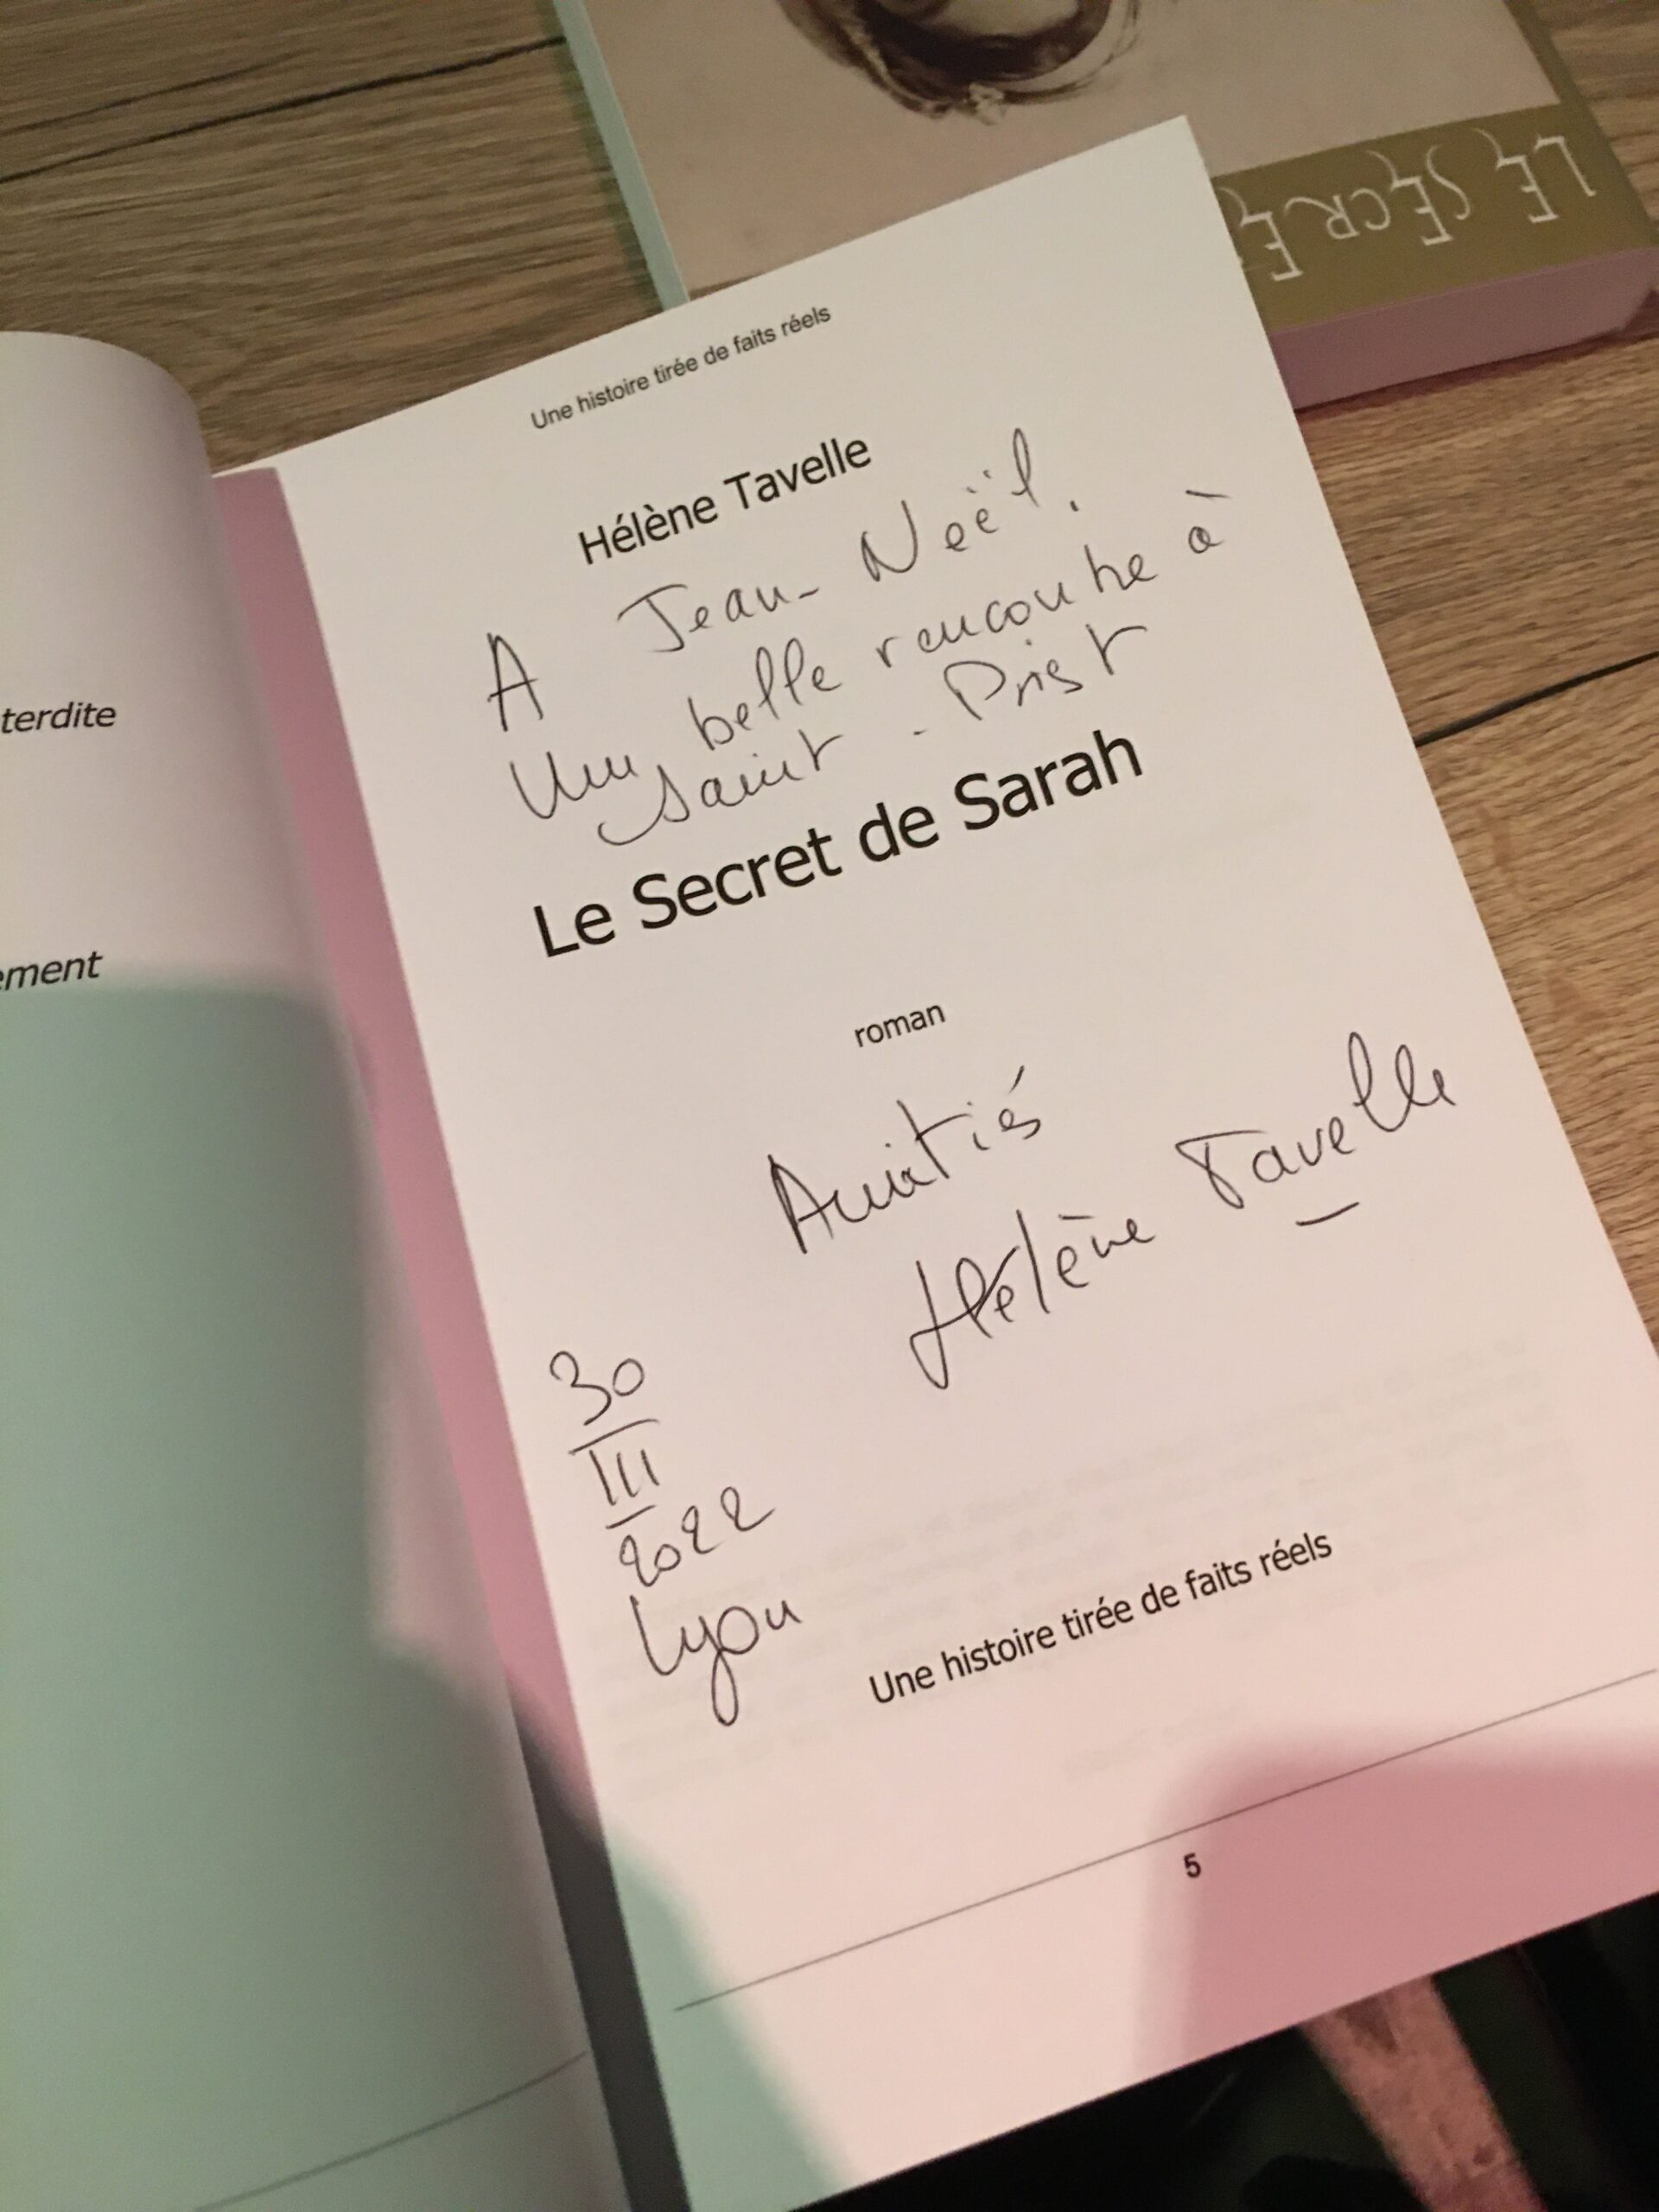 LE SECRE
terdite
ement
Une histoire tirée de faits réels
Hélène Tavelle
A Jean-Noël.
Une belle rencontre à
Saint-Priest
Le Secret de Sarah
roman
Amitiés
Hélène Tavelle
30
III
2022
Lyon
Une histoire tirée de faits réels
5